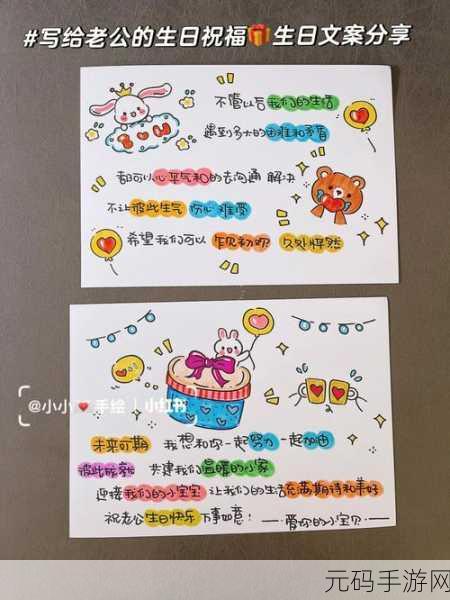 #写给老公的生日祝福🎁生日文案分享
不管以后我们的生活
遇到多大的困难和矛盾
都可以心平气和的去沟通 解决
不让彼此生气 伤心 难受
希望我们可以 乍见初欢 久处怦然
@小小❤手绘 | 小红书
未来可期 我想和你一起努力 一起加油
彼此成就 共建我们温暖的小家
迎接我们的小宝宝 让我们的生活充满期待和美好
祝老公生日快乐 万事如意!
——爱你的小宝贝——
元码手游网